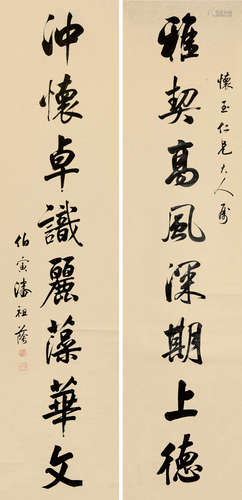 懷玉仁兄大人屬
雅契高風深期上德
沖懷卓識麗藻華文
伯寅潘祖蔭